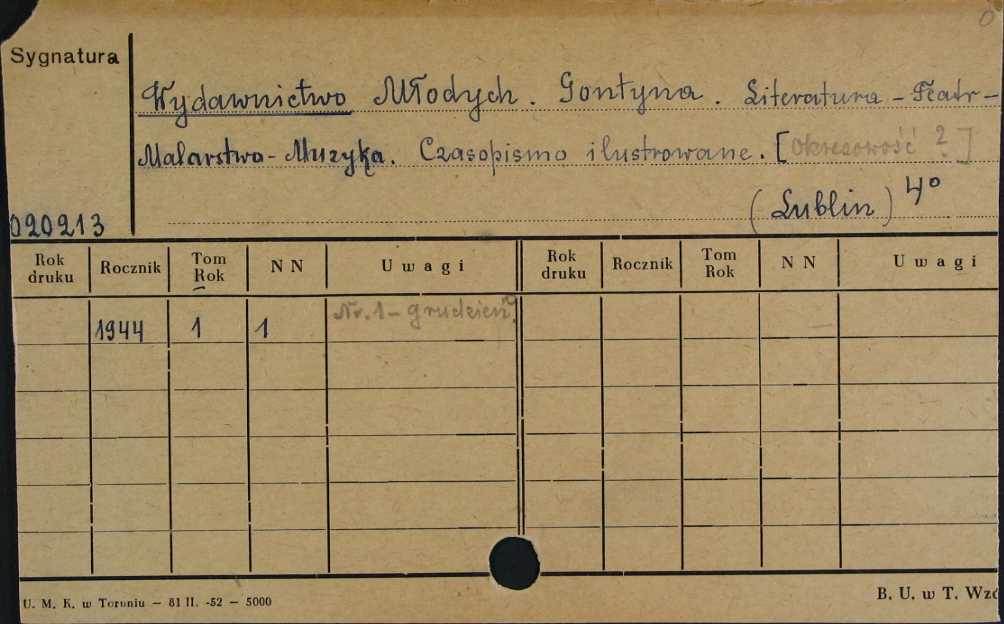 0
Sygnatura
Wydawnictwo Młodych. Gontyna. Literatura - Teatr -
Malarstwo - Muzyka. Czasopismo ilustrowane. [Okresowość ?]
(Lublin) 4°
020213
Rok druku Rocznik Tom Rok N N Uwagi Rok druku Rocznik Tom Rok N N Uwagi
1944 1 1 Nr. 1 - grudzień ?
U. M. K. w Toruniu — 81 II. -52 — 5000 B. U. w T. Wzó